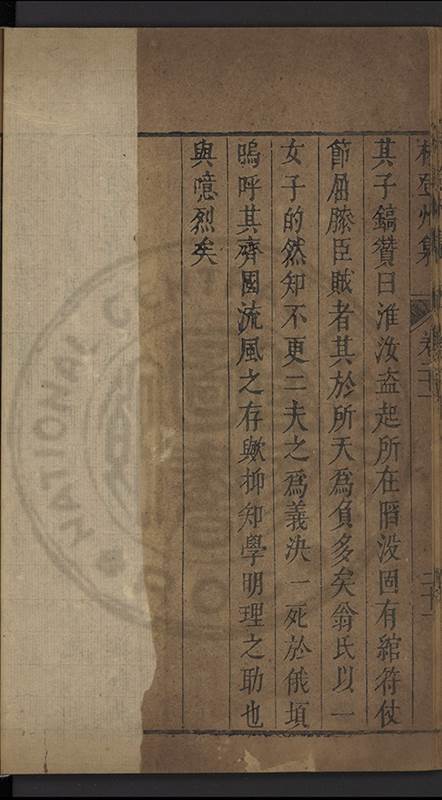 林登州集　卷二十一　二十
其子鎬贊曰淮汝盗起所在陷没固有綰符仗
節屈膝臣賊者其於所天為負多矣翁氏以一
女子的然知不更二夫之為義決一死於俄頃
嗚呼其齊國流風之存歟抑知學明理之助也
與噫烈矣